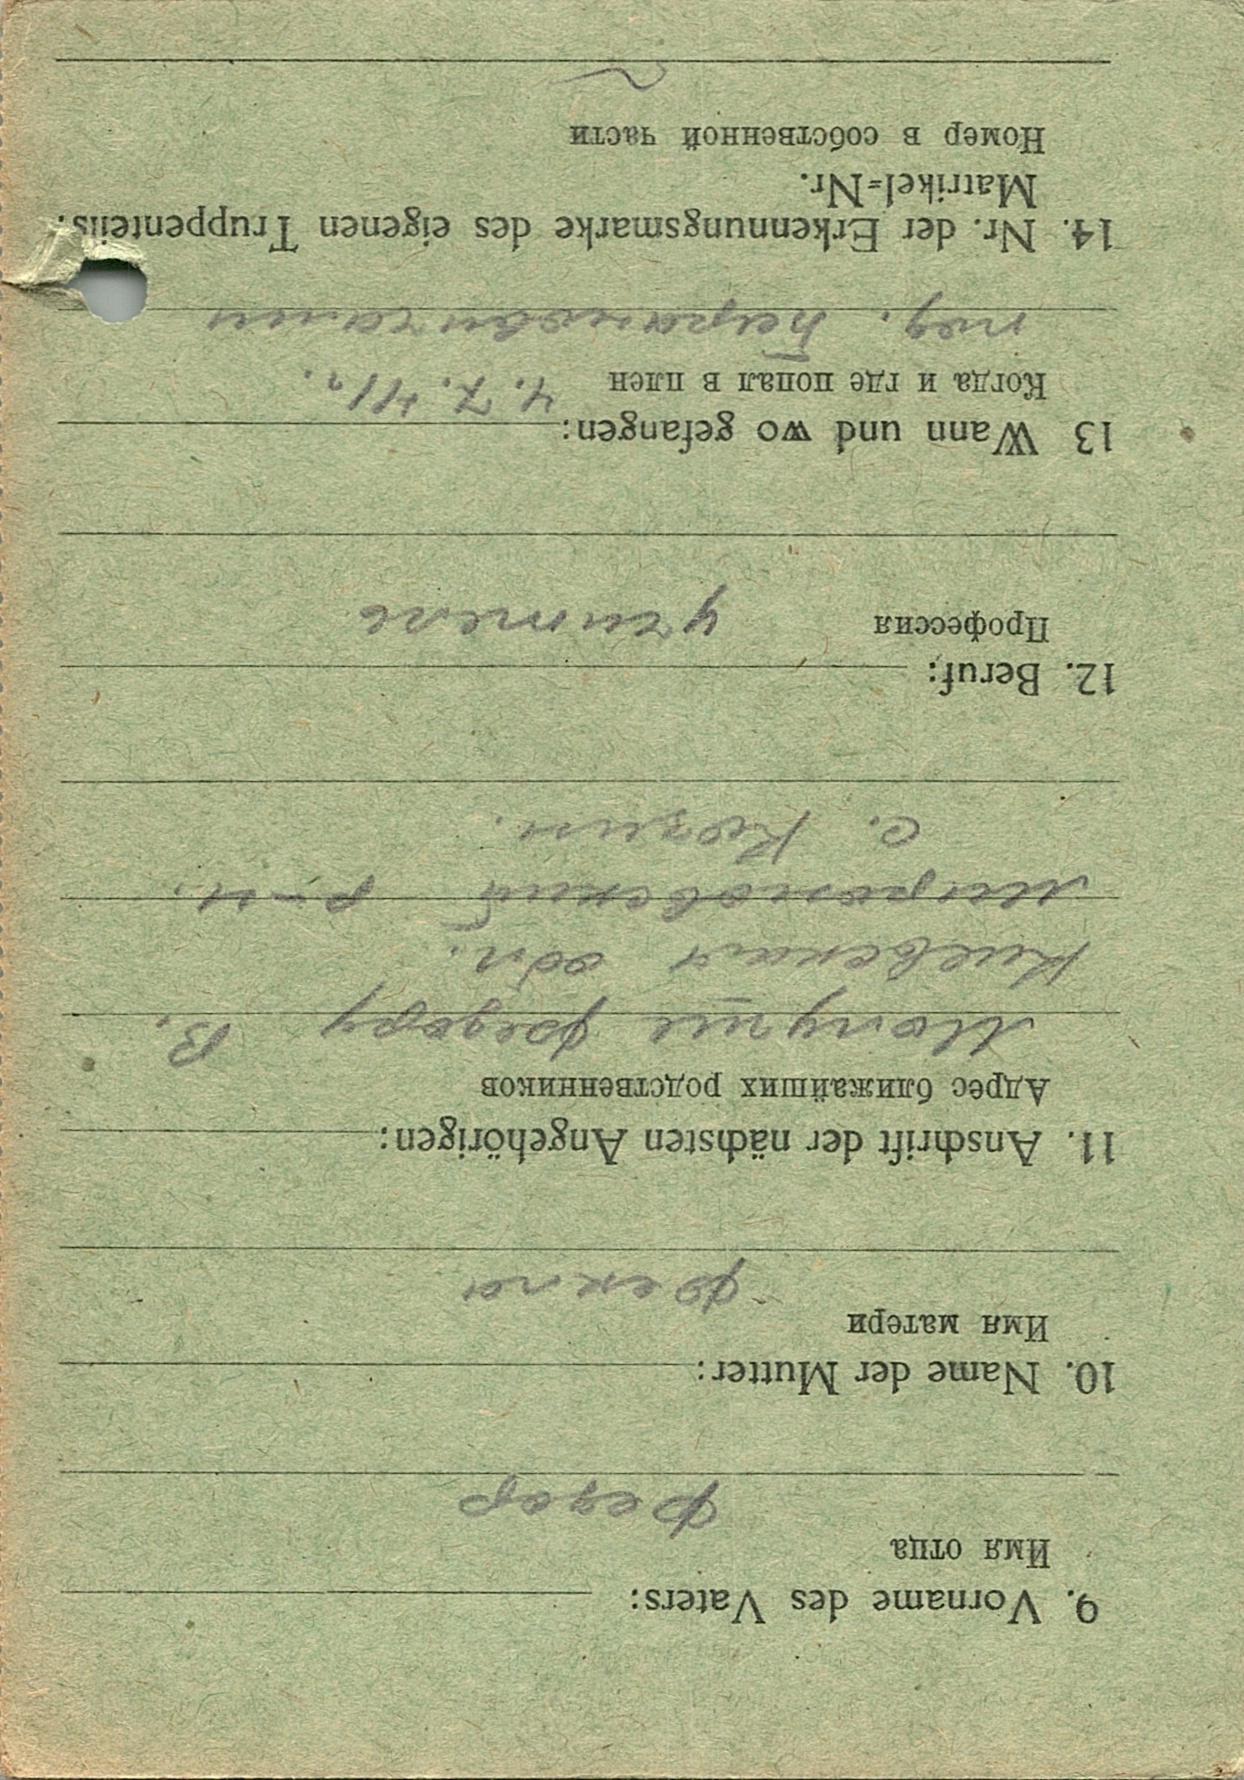 9. Vorname des Vaters:
Имя отца
Федор
10. Name der Mutter:
Имя матери
Фекла
11. Anschrift der nächsten Angehörigen:
Адрес ближайших родственников
федору В.
Киевская обл.
Мироновский р-н.
с. Козин.
12. Beruf:
Профессия
учитель
13 Wann und wo gefangen:
Когда и где попал в плен 4. 7. 41 г.
под. Барановичами
14. Nr. der Erkennungsmarke des eigenen Truppenteils:
Matrikel=Nr.
Номер в собственной части